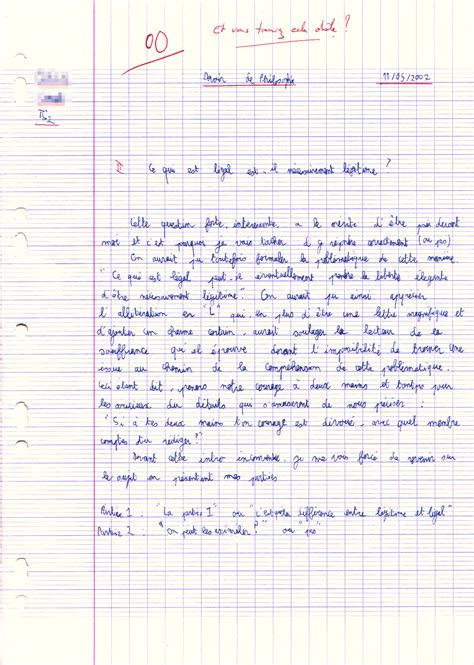 Et vous trouvez cela drôle ?
00
Devoir de Philosophie
11/05/2002
TS2
I Ce qui est légal est-il nécessairement légitime ?
Cette question forte intéressante, a le mérite d'être par devant
moi et c'est pourquoi je vais tâcher d'y répondre correctement (ou pas)
On aurait pu toutefois formuler la problématique de cette manière
"Ce qui est légal peut-il éventuellement prendre la liberté élégante
d'être nécessairement légitime" On aurait pu ainsi apprécier
l'allitération en "L" qui en plus d'être une lettre magnifique et
d'ajouter un charme certain, aurait soulager le lecteur de la
souffrance qu'il éprouve devant l'impossibilité de trouver une
issue au chemin de la compréhension de cette problématique.
Ceci étant dit, prenons notre courage à deux mains et
les du débuts qui s'amuseront de nous préciser :
"Si à tes deux mains ton courage est dévoué, avec quel membre
comptes tu rédiger ?"
Devant cette intro , je me vois forcé de revenir sur
le sujet en présentant mes parties
Partie 1 : "La partie 1" ou "c'est quoi la différence entre légitime et légal"
Partie 2 : "On peut les assimiler ?" ou "pas"